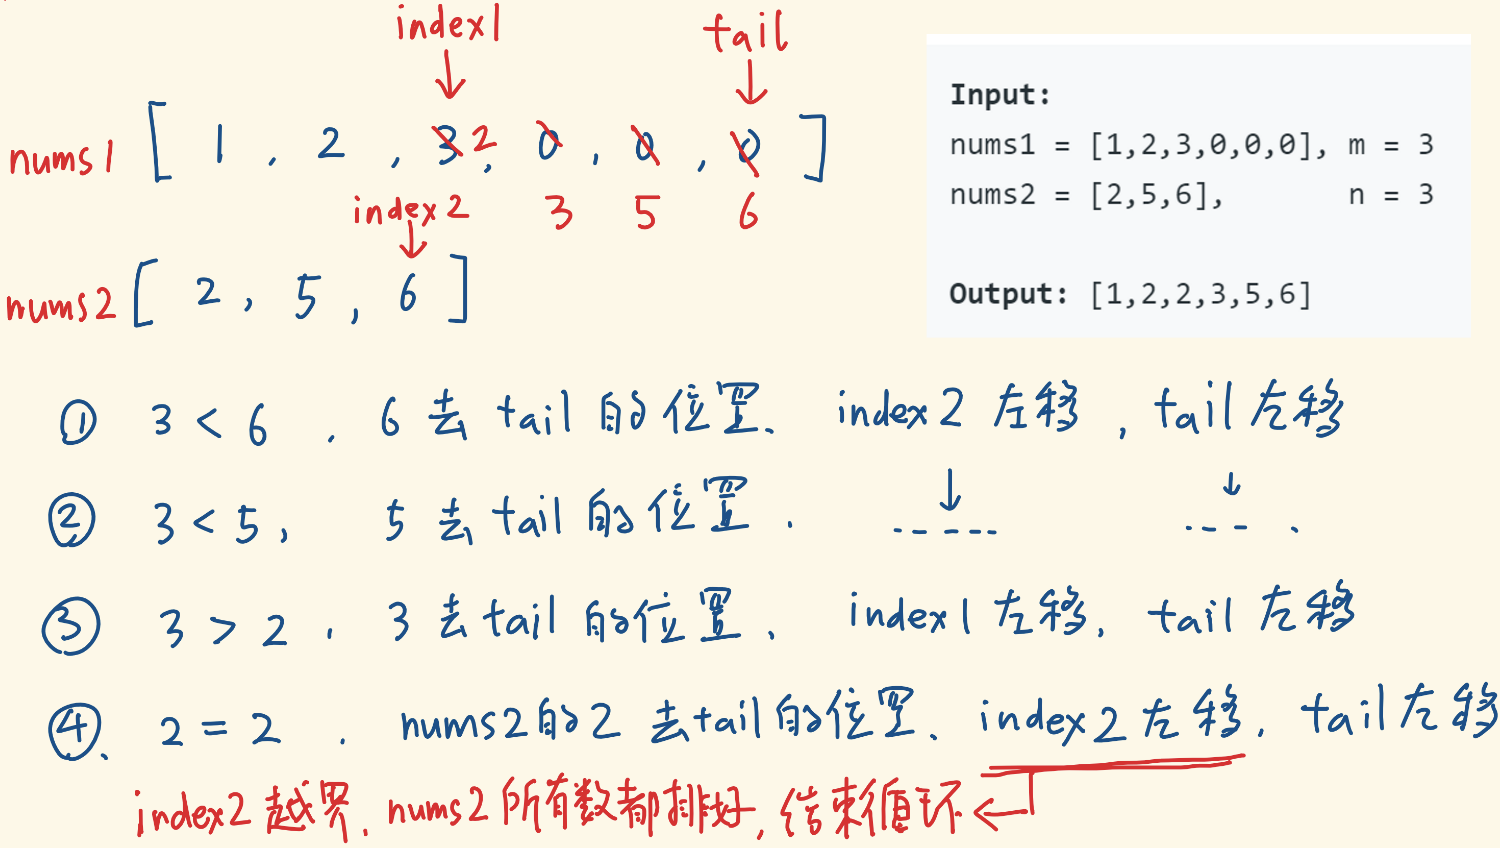 index1 tail
nums1 [ 1 , 2 , 3 2 , 0 , 0 , 0 ]
index2 3 5 6
nums2 [ 2 , 5 , 6 ]
Input:
nums1 = [1,2,3,0,0,0], m = 3
nums2 = [2,5,6], n = 3
Output: [1,2,2,3,5,6]
① 3 < 6 . 6 去 tail 的位置、 index2 左移 , tail 左移
② 3 < 5 , 5 去 tail 的位置 .
③ 3 > 2 , 3 去 tail 的位置、 index1 左移, tail 左移
④、 2 = 2 . nums2的2 去tail的位置、 index2左移, tail左移
index2 越界, nums2 所有数都排好, 结束循环